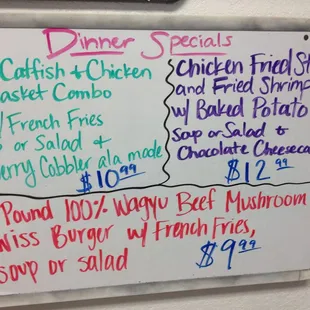 Dinner Specials
Catfish & Chicken
Basket Combo
w/ French Fries
or Salad &
Cobbler ala mode
$10.99
Chicken Fried
and Fried Shrimp
w/ Baked Potato
Soup or Salad &
Chocolate
$12.99
Pound 100% Wagyu Beef Mushroom
Swiss Burger w/ French Fries,
soup or salad
$9.99